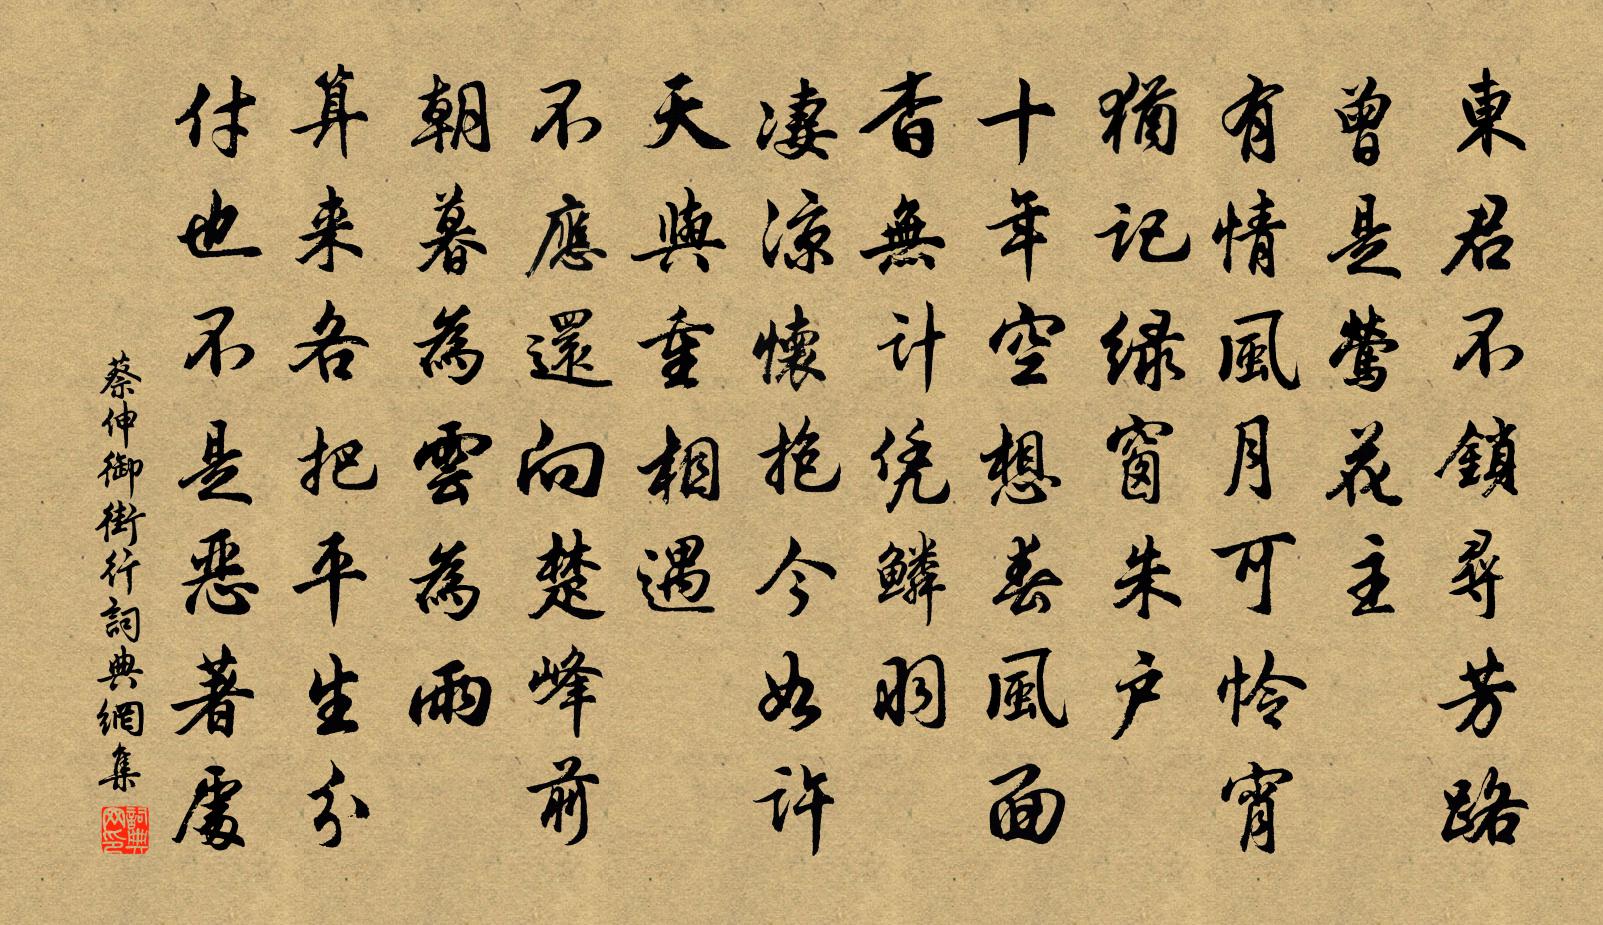 東君不鎖尋芳路
曾是鶯花主
有情風月可憐宵
猶記緑窗朱户
十年空想春風面
杳無計凭鱗羽
凄涼懷抱今如許
天與重相遇
不應還向楚峰前
朝暮為雲為雨
算来各把平生分
付也不是惡著處
蔡伸御街行詞典網集
詞典
网印